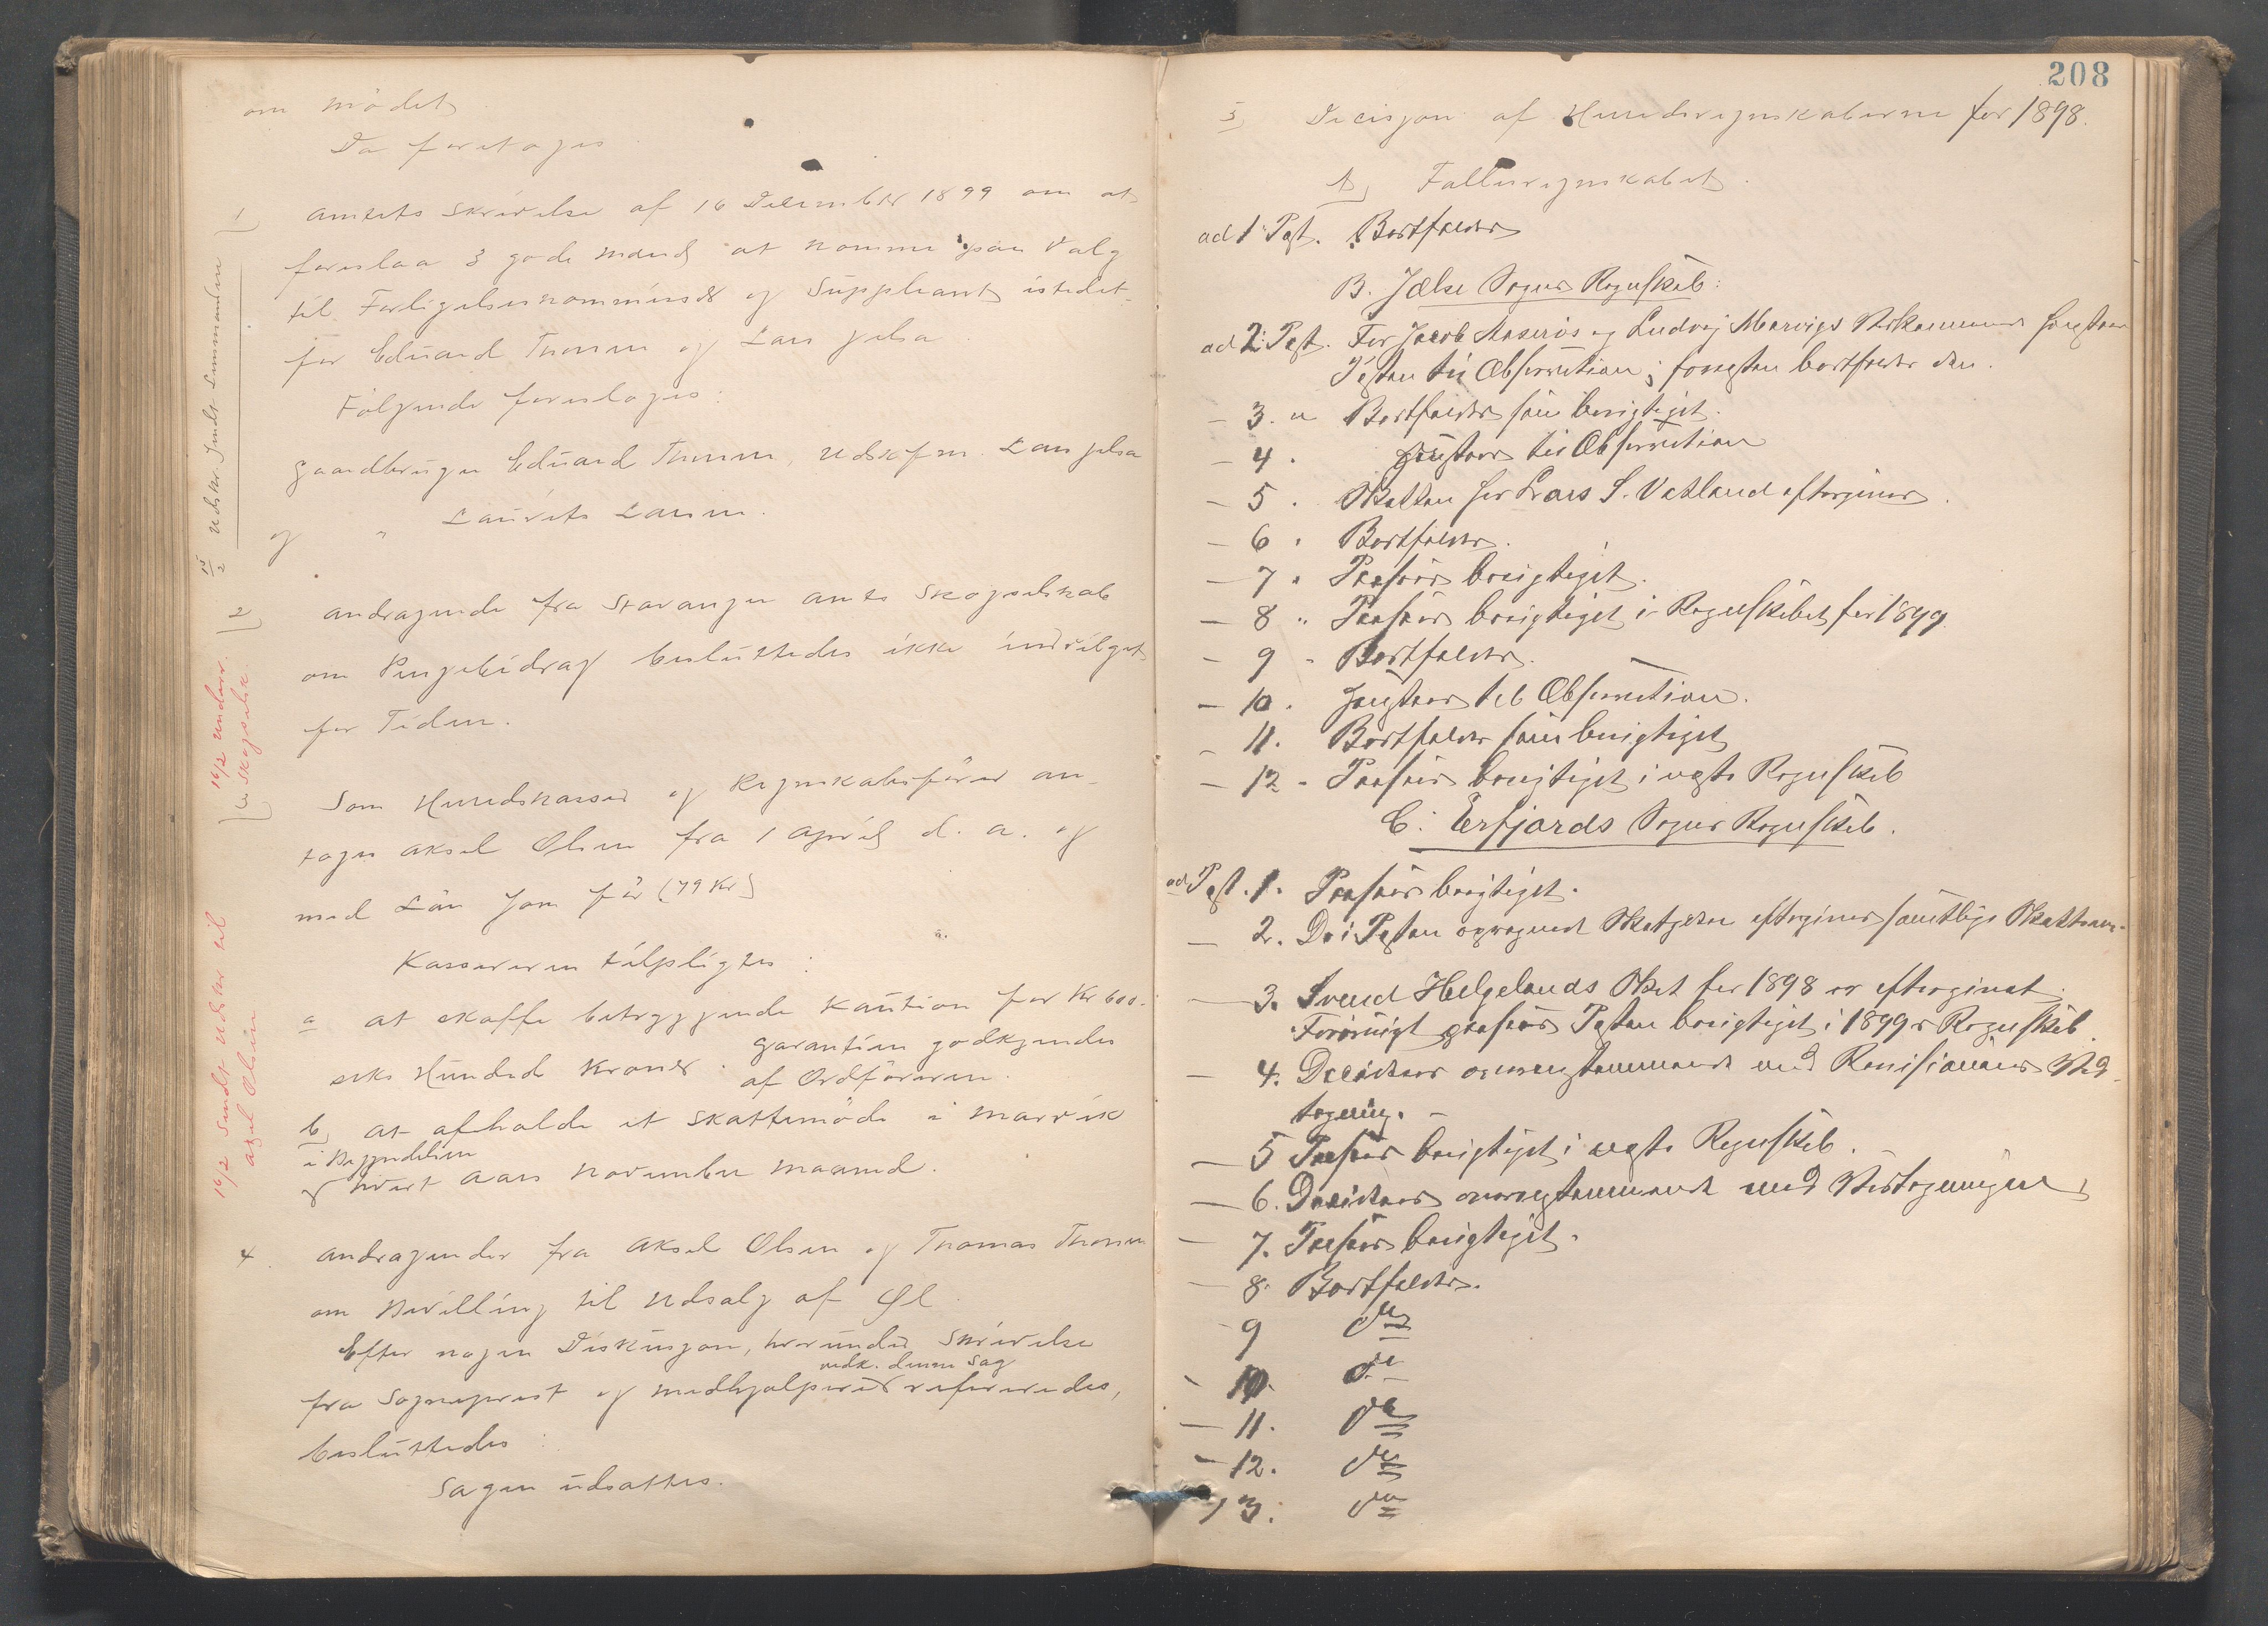 om Mödet
Da foretoges
1) Amtets Skrivelse af 16 December 1899 om at
foreslaa 3 gode Mænd at komme paa Valg
til Forligelseskommissær og Suppleant istedet-
for Eduard Thorsen og Lars Jelsa
Følgende foresloges:
Gaardbruger Eduard Thorsen, Udskifm. Lars Jelsa
og " Laurits Larsen.
15/2 Udskr. Sendt Lensmanden
2) Andragende fra Stavanger Amts Skogselskab
om Pengebidrag besluttedes ikke indvilget
for Tiden.
16/2 underr.
Skogselsk.
Som Herredskasser og Regnskabsfører an-
toges Aksel Olsen fra 1 April d. a. og
med Løn som før (79 Kr)
Kassereren tilpligtes:
a at skaffe betryggende Kaution for Kr 600-
seks Hundrede Kroner. Garantien godkjendes
af Ordføreren.
b, at afholde et Skattemøde i Marvik
i Begyndelsen
hvert Aars November Maaned.
16/2 Sendt Udskr til
Axel Olsen
4. Andragender fra Aksel Olsen og Thomas Thorsen
om Bevilling til Udsalg af Øl.
Efter nogen Diskusjon, hvorunder Skrivelse
vedk. denne Sag
fra Sogneprest og Medhjælpere refereredes,
besluttedes:
Sagen udsættes.
208
5, Decisjon af Herredsregnskaberne for 1898.
A, Fællesregnskabet.
ad 1 Post. Bortfalder
B. Jelse Sogns Regnskab:
ad 2. Post. For Jacob Aaserøs og Ludvig Marvigs Vedkommende henstaar
Posten til Observation; forresten bortfalder den.
— 3. " Bortfalder som berigtiget.
— 4. henstaar til Observation
— 5. Skatten for Lars S. Vatland eftergives.
— 6. Bortfalder.
— 7. Paasees berigtiget.
— 8 " Paasees berigtiget i Regnskabet for 1899
— 9 " Bortfalder.
— 10. henstaar til Observation.
— 11. Bortfalder som berigtiget
— 12 " Paasees berigtiget i næste Regnskab
C. Erfjords Sogns Regnskab.
ad Post. 1. Paasees berigtiget.
— 2. De i Posten opregnede Skatydere eftergives samtlige Skatten.
— 3. Svend Helgelands Skat for 1898 er eftergivet.
Forøvrigt paasees Posten berigtiget i 1899s Regnskab.
— 4. Decideres overensstemmende med Revisionens Ved-
tegning. —
— 5 Paasees berigtiget i næste Regnskab.
— 6. Decideres overensstemmende med Vedtegningen
— 7. Paasees berigtiget.
— 8. Bortfalder.
— 9 do
— 10. do
— 11. do
— 12. do
13. do